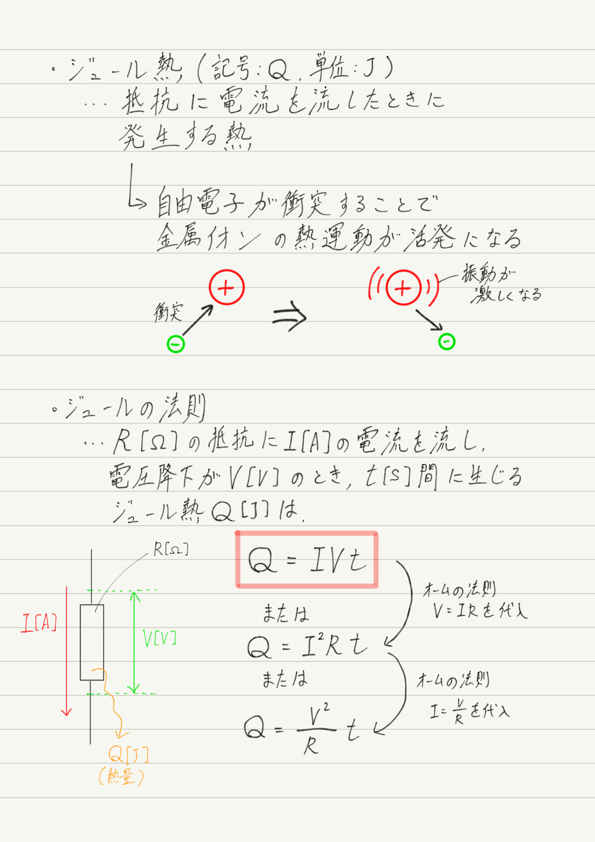 ・ジュール熱(記号:Q, 単位:J)
… 抵抗に電流を流したときに
発生する熱
自由電子が衝突することで
金属イオンの熱運動が活発になる
衝突
+
−
⇒
+
−
振動が
激しくなる
・ジュールの法則
… R[Ω]の抵抗にI[A]の電流を流し,
電圧降下がV[V]のとき, t[s]間に生じる
ジュール熱Q[J]は,
R[Ω]
I[A]
V[V]
Q[J]
(熱量)
Q = IVt
または
Q = I²Rt
または
Q = V²/R t
オームの法則
V=IRを代入
オームの法則
I=V/Rを代入